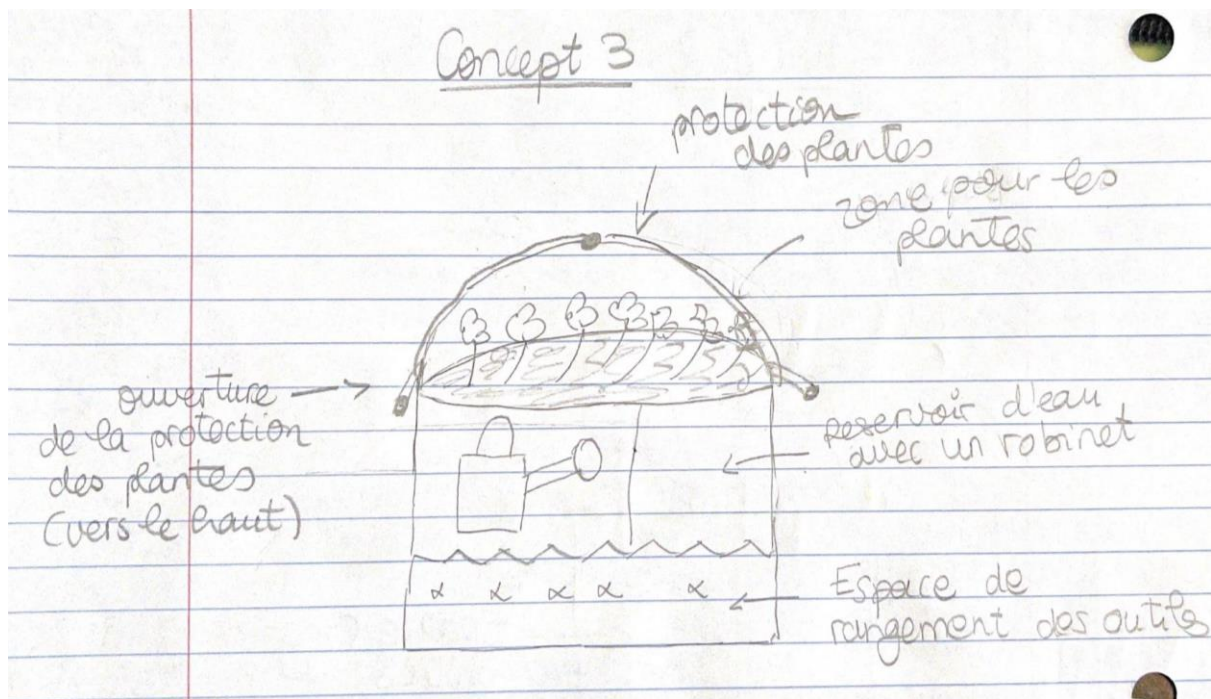 Concept 3
protection
des plantes
zone pour les
plantes
ouverture
de la protection
des plantes
(vers le haut)
reservoir d'eau
avec un robinet
Espace de
rangement des outils